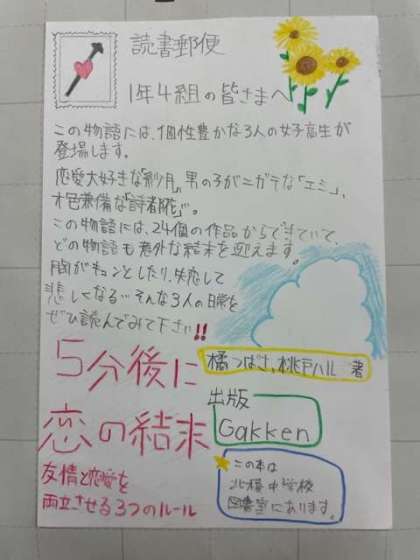 読書郵便
1年4組の皆さまへ
この物語には、個性豊かな3人の女子高生が
登場します。
恋愛大好きな「紗月」、男の子がニガテな「エミ」、
才色兼備な「詩都花」。
この物語には、24個の作品からできていて、
どの物語も意外な結末を迎えます。
胸がキュンとしたり、失恋して
悲しくなる…そんな3人の日常を
ぜひ読んでみて下さい!!
5分後に
恋の結末
橘つばさ、桃戸ハル 著
出版
Gakken
友情と恋愛を
両立させる3つのルール
この本は
中学校
図書室にあります。